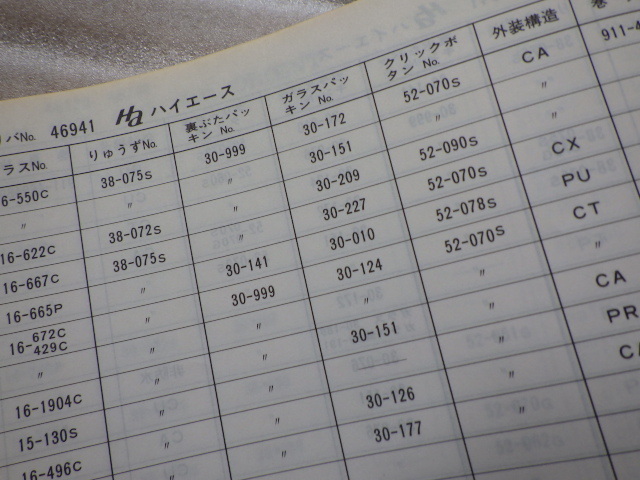 バNo. 46941 ハイエース
ラスNo. りゅうずNo. 裏ぶたパッキン No. ガラスパッキン No. クリックボタン No. 外装構造
6-550C 38-075S 30-999 30-172 52-070S CA 911-4
〃 〃 〃 30-151 〃 〃
16-622C 38-072S 〃 30-209 52-090S CX
16-667C 38-075S 〃 30-227 52-070S PU
16-665P 〃 30-141 30-010 52-078S CT
16-672C 429C 〃 30-999 30-124 52-070S 〃
〃 〃 〃 〃 〃 CA
16-1904C 〃 〃 30-151 〃 PR
15-130S 〃 〃 30-126 〃 CA
16-496C 〃 〃 30-177 〃